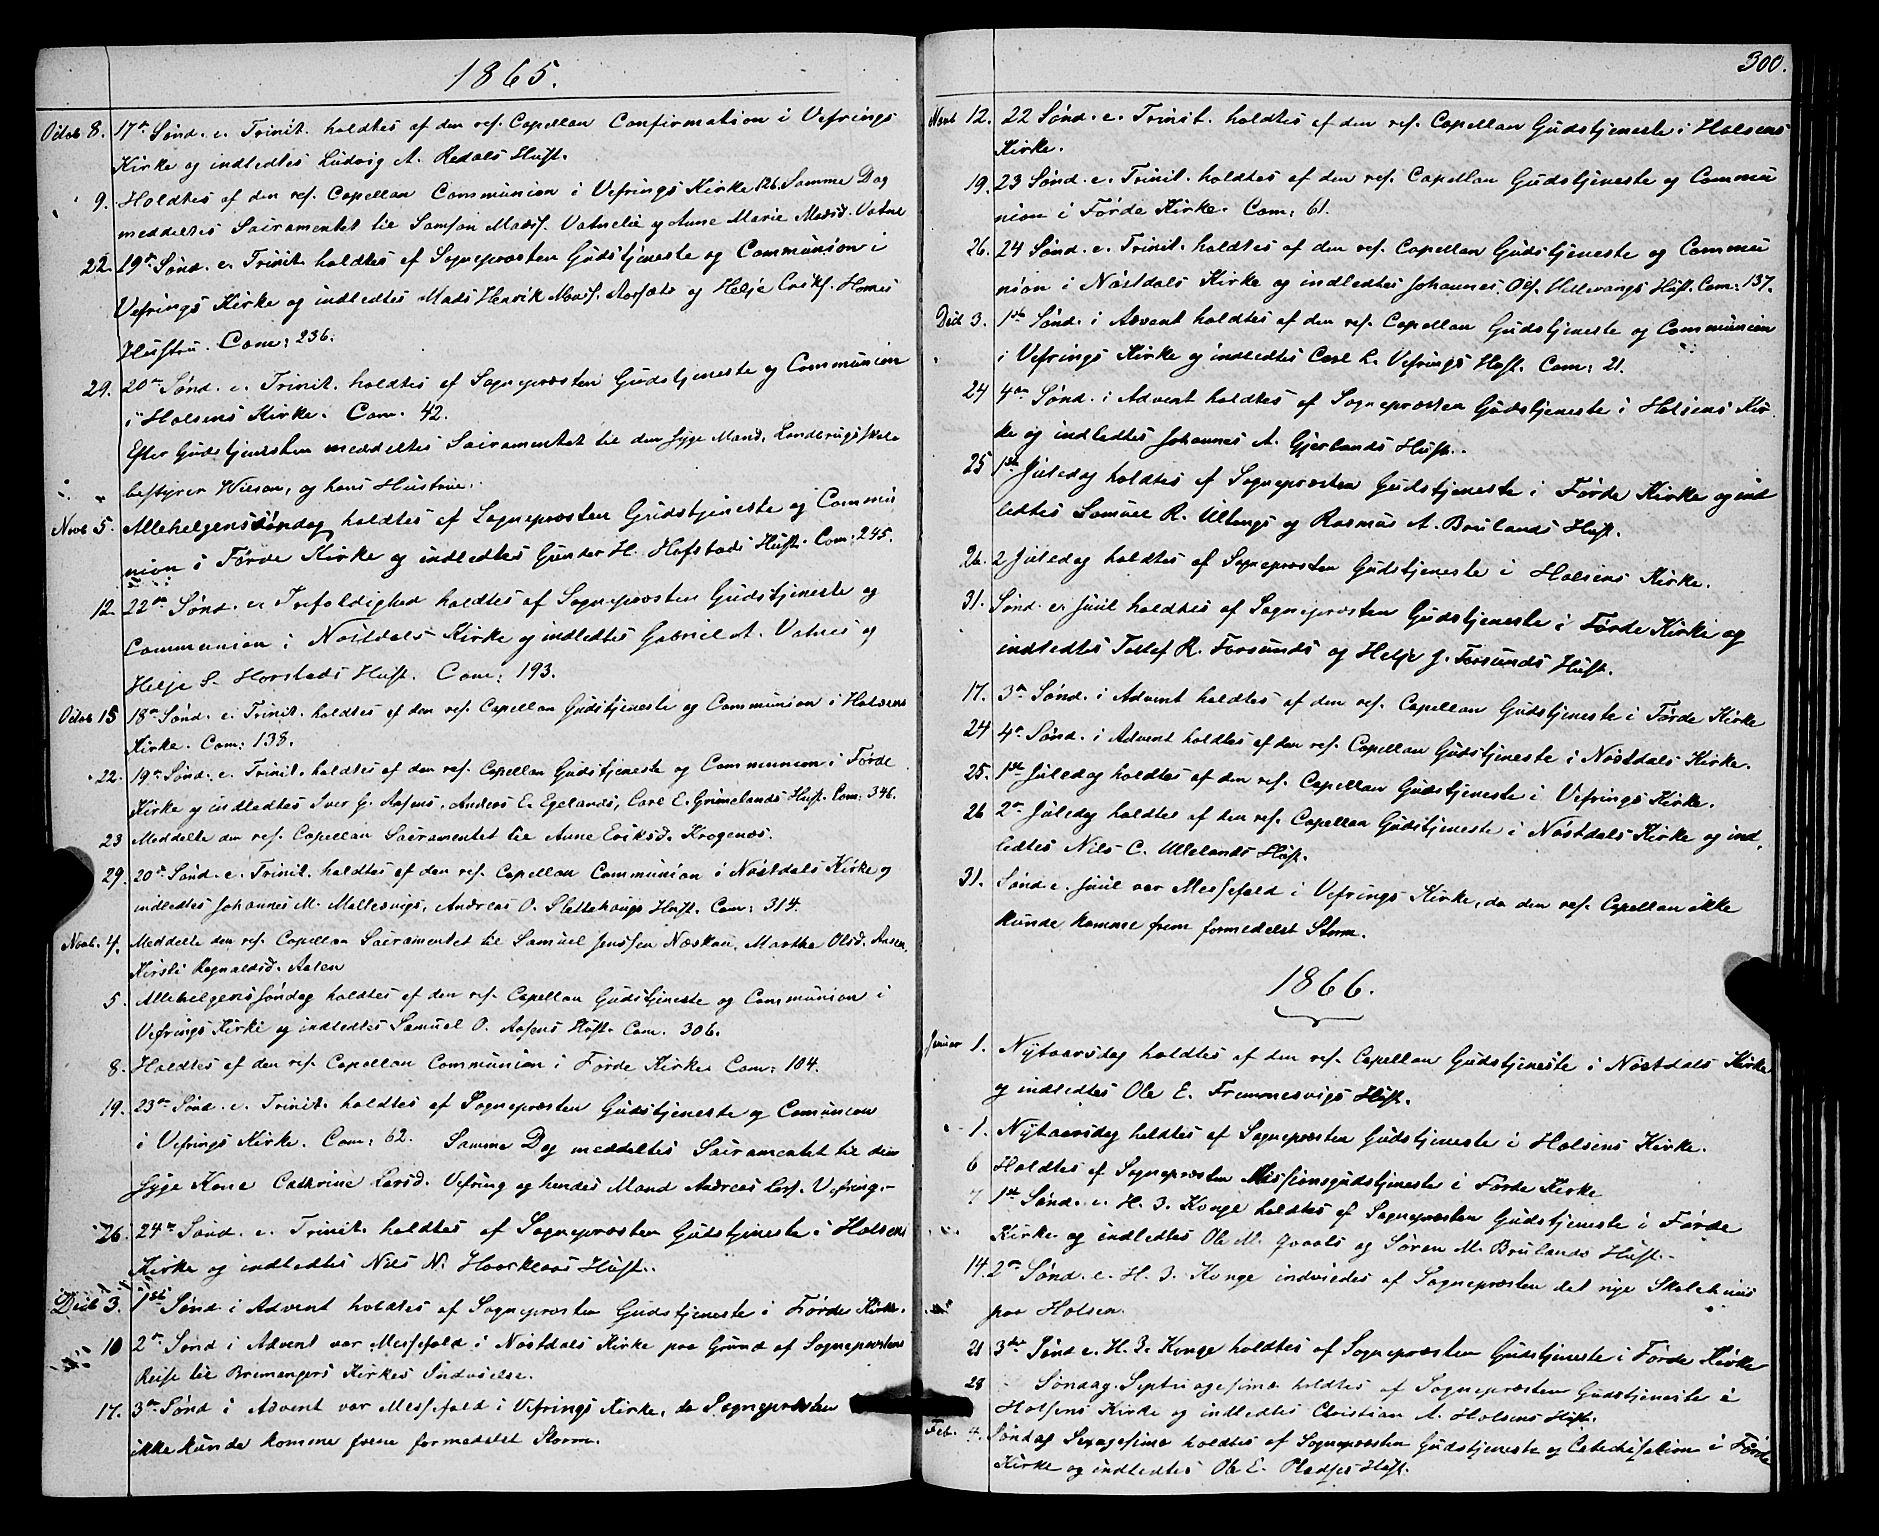 1865.
Octob 8. 17de Sønd. e. Trinit. holdtes af den res. Capellan Confirmation i Vefrings
Kirke og indledtes Ludvig A. Redals Hust.
9. Holdtes af den res. Capellan Communion i Vefrings Kirke 126. Samme Dag
meddeltes Sacramentet til Samson Madss. Vatnelie og Anne Marie Madsd. Vatne
22. 19de Sønd. e. Trinit. holdtes af Sognepræsten Gudstjeneste og Communion i
Vefrings Kirke og indledtes Mads Henrik Monss. og Helje Eriks. Hornes
Hustru. Com: 236.
29. 20de Sønd. e. Trinit. holdtes af Sognepræsten Gudstjeneste og Communion
i Holsens Kirke. Com. 42.
Efter Gudstjenesten meddeltes Sacramentet til den syge Mand, Landbrugsskole
bestyrer Wilson, og hans Hustrue.
Novb 5. Allehelgenssøndag holdtes af Sognepræsten Gudstjeneste og Commu
nion i Førde Kirke og indledtes Gunder H. Hafstads Hust. Com: 245.
12. 22de Sønd. e. Trefoldighed holdtes af Sognepræsten Gudstjeneste og
Communion i Nøstdals Kirke og indledtes Gabriel A. Vatnes og
Helje S. Horstads Hust. Com: 193.
Octob 15 18de Sønd. e. Trinit. holdtes af den res. Capellan Gudstjeneste og Communion i Holsens
Kirke. Com: 138.
22. 19de Sønd. e. Trinit. holdtes af den res. Capellan Gudstjeneste og Communion i Førde
Kirke og indledtes Iver G. Aasens, Anders E. Egelands, Carl E. Grimelands Hust. Com: 346.
23 Meddelte den res. Capellan Sacramentet til Anne Eriksd. Krogenæs.
29. 20de Sønd. e. Trinit. holdtes af den res. Capellan Communion i Nøstdals Kirke og
indledtes Johannes M. Mallesvigs, Andreas O. Slettehaugs Hust. Com: 314.
Novb. 4. Meddelte den res. Capellan Sacramentet til Samuel Jenssen Næskau, Marthe Olsd. Aasen,
Kirsti Ragnaldsd. Aasen
5. Allehelgenssøndag holdtes af den res. Capellan Gudstjeneste og Communion i
Vefrings Kirke og indledtes Samuel O. Aasens Hust. Com. 306.
8. Holdtes af den res. Capellan Communion i Førde Kirke Com: 104.
19. 23de Sønd. e. Trinit. holdtes af Sognepræsten Gudstjeneste og Comunion
i Vefrings Kirke. Com: 62. Samme Dag meddeltes Sacramentet til den
syge Kone Cathrine Larsd. Vefring og hendes Mand Andreas Lars. Vefring.
26. 24de Sønd. e. Trinit. holdtes af Sognepræsten Gudstjeneste i Holsens
Kirke og indledtes Nils N. Haarklaus Hust.
Decb 3. 1ste Sønd i Advent holdtes af Sognepræsten Gudstjeneste i Førde Kirke.
10 2de Sønd i Advent var Messefald i Nøstdals Kirke paa Grund af Sognepræstens
Reise til Bremangers Kirkes Indvielse.
17. 3de Sønd i Advent var Messefald i Vefrings Kirke, da Sognepræsten
ikke kunde komme frem formedelst Storm.
300.
Novb 12. 22 Sønd. e. Trinit. holdtes af den res. Capellan Gudstjeneste i Holsens
Kirke.
19. 23 Sønd. e. Trinit. holdtes af den res. Capellan Gudstjeneste og Commu
nion i Førde Kirke. Com: 61.
26. 24 Sønd. e. Trinit. holdtes af den res. Capellan Gudstjeneste og Commu
nion i Nøstdals Kirke og indledtes Johannes Ols. Hellevangs Hust. Com: 137.
Decb 3. 1ste Sønd. i Advent holdtes af den res. Capellan Gudstjeneste og Communion
i Vefrings Kirke og indledtes Carl L. Vefrings Hust. Com: 21.
24 4de Sønd. i Advent holdtes af Sognepræsten Gudstjeneste i Holsens Kir
ke og indledtes Johannes A. Gjerlands Hust.
25 1ste Juledag holdtes af Sognepræsten Gudstjeneste i Førde Kirke og ind
ledtes Samuel R. Ultangs og Rasmus A. Brulands Hust.
26. 2 Juledag holdtes af Sognepræsten Gudstjeneste i Holsens Kirke.
31. Sønd. e. Juul holdtes af Sognepræsten Gudstjeneste i Førde Kirke og
indledtes Tollef R. Farsunds og Helje J. Farsunds Hust.
17. 3de Sønd. i Advent holdtes af den res. Capellan Gudstjeneste i Førde Kirke
24 4de Sønd. i Advent holdtes af den res. Capellan Gudstjeneste i Nøstdals Kirke.
25. 1ste Juledag holdtes af den res. Capellan Gudstjeneste i Vefrings Kirke.
26 2de Juledag holdtes af den res. Capellan Gudstjeneste i Nøstdals Kirke og ind,
ledtes Nils C. Ullelands Hust.
31. Sønd. e. Juul var Messefald i Vefrings Kirke, da den res. Capellan ikke
kunde komme frem formedelst Storm.
1866.
Januar 1. Nytaarsdag holdtes af den res. Capellan Gudstjeneste i Nøstdals Kirke
og indledtes Ole E. Fremmesvigs Hust.
1. Nytaarsdag holdtes af Sognepræsten Gudstjeneste i Holsens Kirke.
6 Holdtes af Sognepræsten Missionsgudstjeneste i Førde Kirke
7 1ste Sønd. e. H. 3. Konge holdtes af Sognepræsten Gudstjeneste i Førde
Kirke og indledtes Ole M. Qvaals og Søren M. Brulands Hust.
14. 2de Sønd. e. H. 3. Konge indviedes af Sognepræsten det nye Skolehuus
paa Holsen.
21 3die Sønd e. H. 3. Konge holdtes af Sognepræsten Gudstjeneste i Førde Kirke
28 Søndag Septuagesima holdtes af Sognepræsten Gudstjeneste i
Holsens Kirke og indledtes Christian A. Holsens Hust.
Feb. 4. Søndag Sexagesima holdtes af Sognepræsten Gudstjeneste og Catechisation i Førde
Kirke og indledtes Ole E. Pladses Hust.